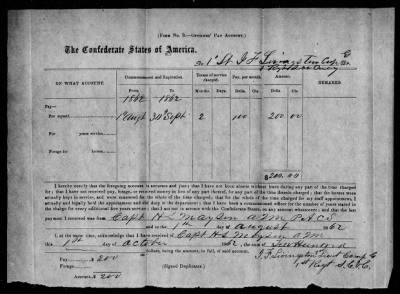 (FORM NO. 3.—OFFICERS' PAY ACCOUNT.)
The Confederate States of America,
To 1st Lt J F Livingston Comp C Dr.
ON WHAT ACCOUNT. Commencement and Expiration. Terms of service charged. Pay, per month. Amount. REMARKS.
From To Months. Days. Dolls. Cts. Dolls. Cts.
1862 1862
Pay—
For myself 1st Augt 30th Sept 2 100 200 00
For years service
Forage for horses
$200.00
I hereby certify that the foregoing account is accurate and just; that I have not been absent without leave during any part of the time charged
for; that I have not received pay, forage, or received money in lieu of any part thereof, for any part of the time therein charged; that the horses
actually kept in service, and were mustered for the whole of the time charged; that for the whole of the time charged for my staff appointment, I
actually and legally held the appointment and did duty in the department; that I have been a commissioned officer for the number of years stated in
the charge for every additional five years service; that I am not in arrears with the Confederate States, on any account whatsoever; and that the last
payment I received was from Capt. H L Mayson AQM P.A.C.S
and to the 1st day of August 62
I, at the same time, acknowledge that I have received of Capt H L Mayson AQM
this 1st day of October 1862, the sum of Two Hundred
dollars, being the amount, in full, of said account.
Pay $200
Forage
Amount $200
(Signed Duplicates.)
J. F. Livingston Lieut Comp C
1st Regt S.C.V.C.